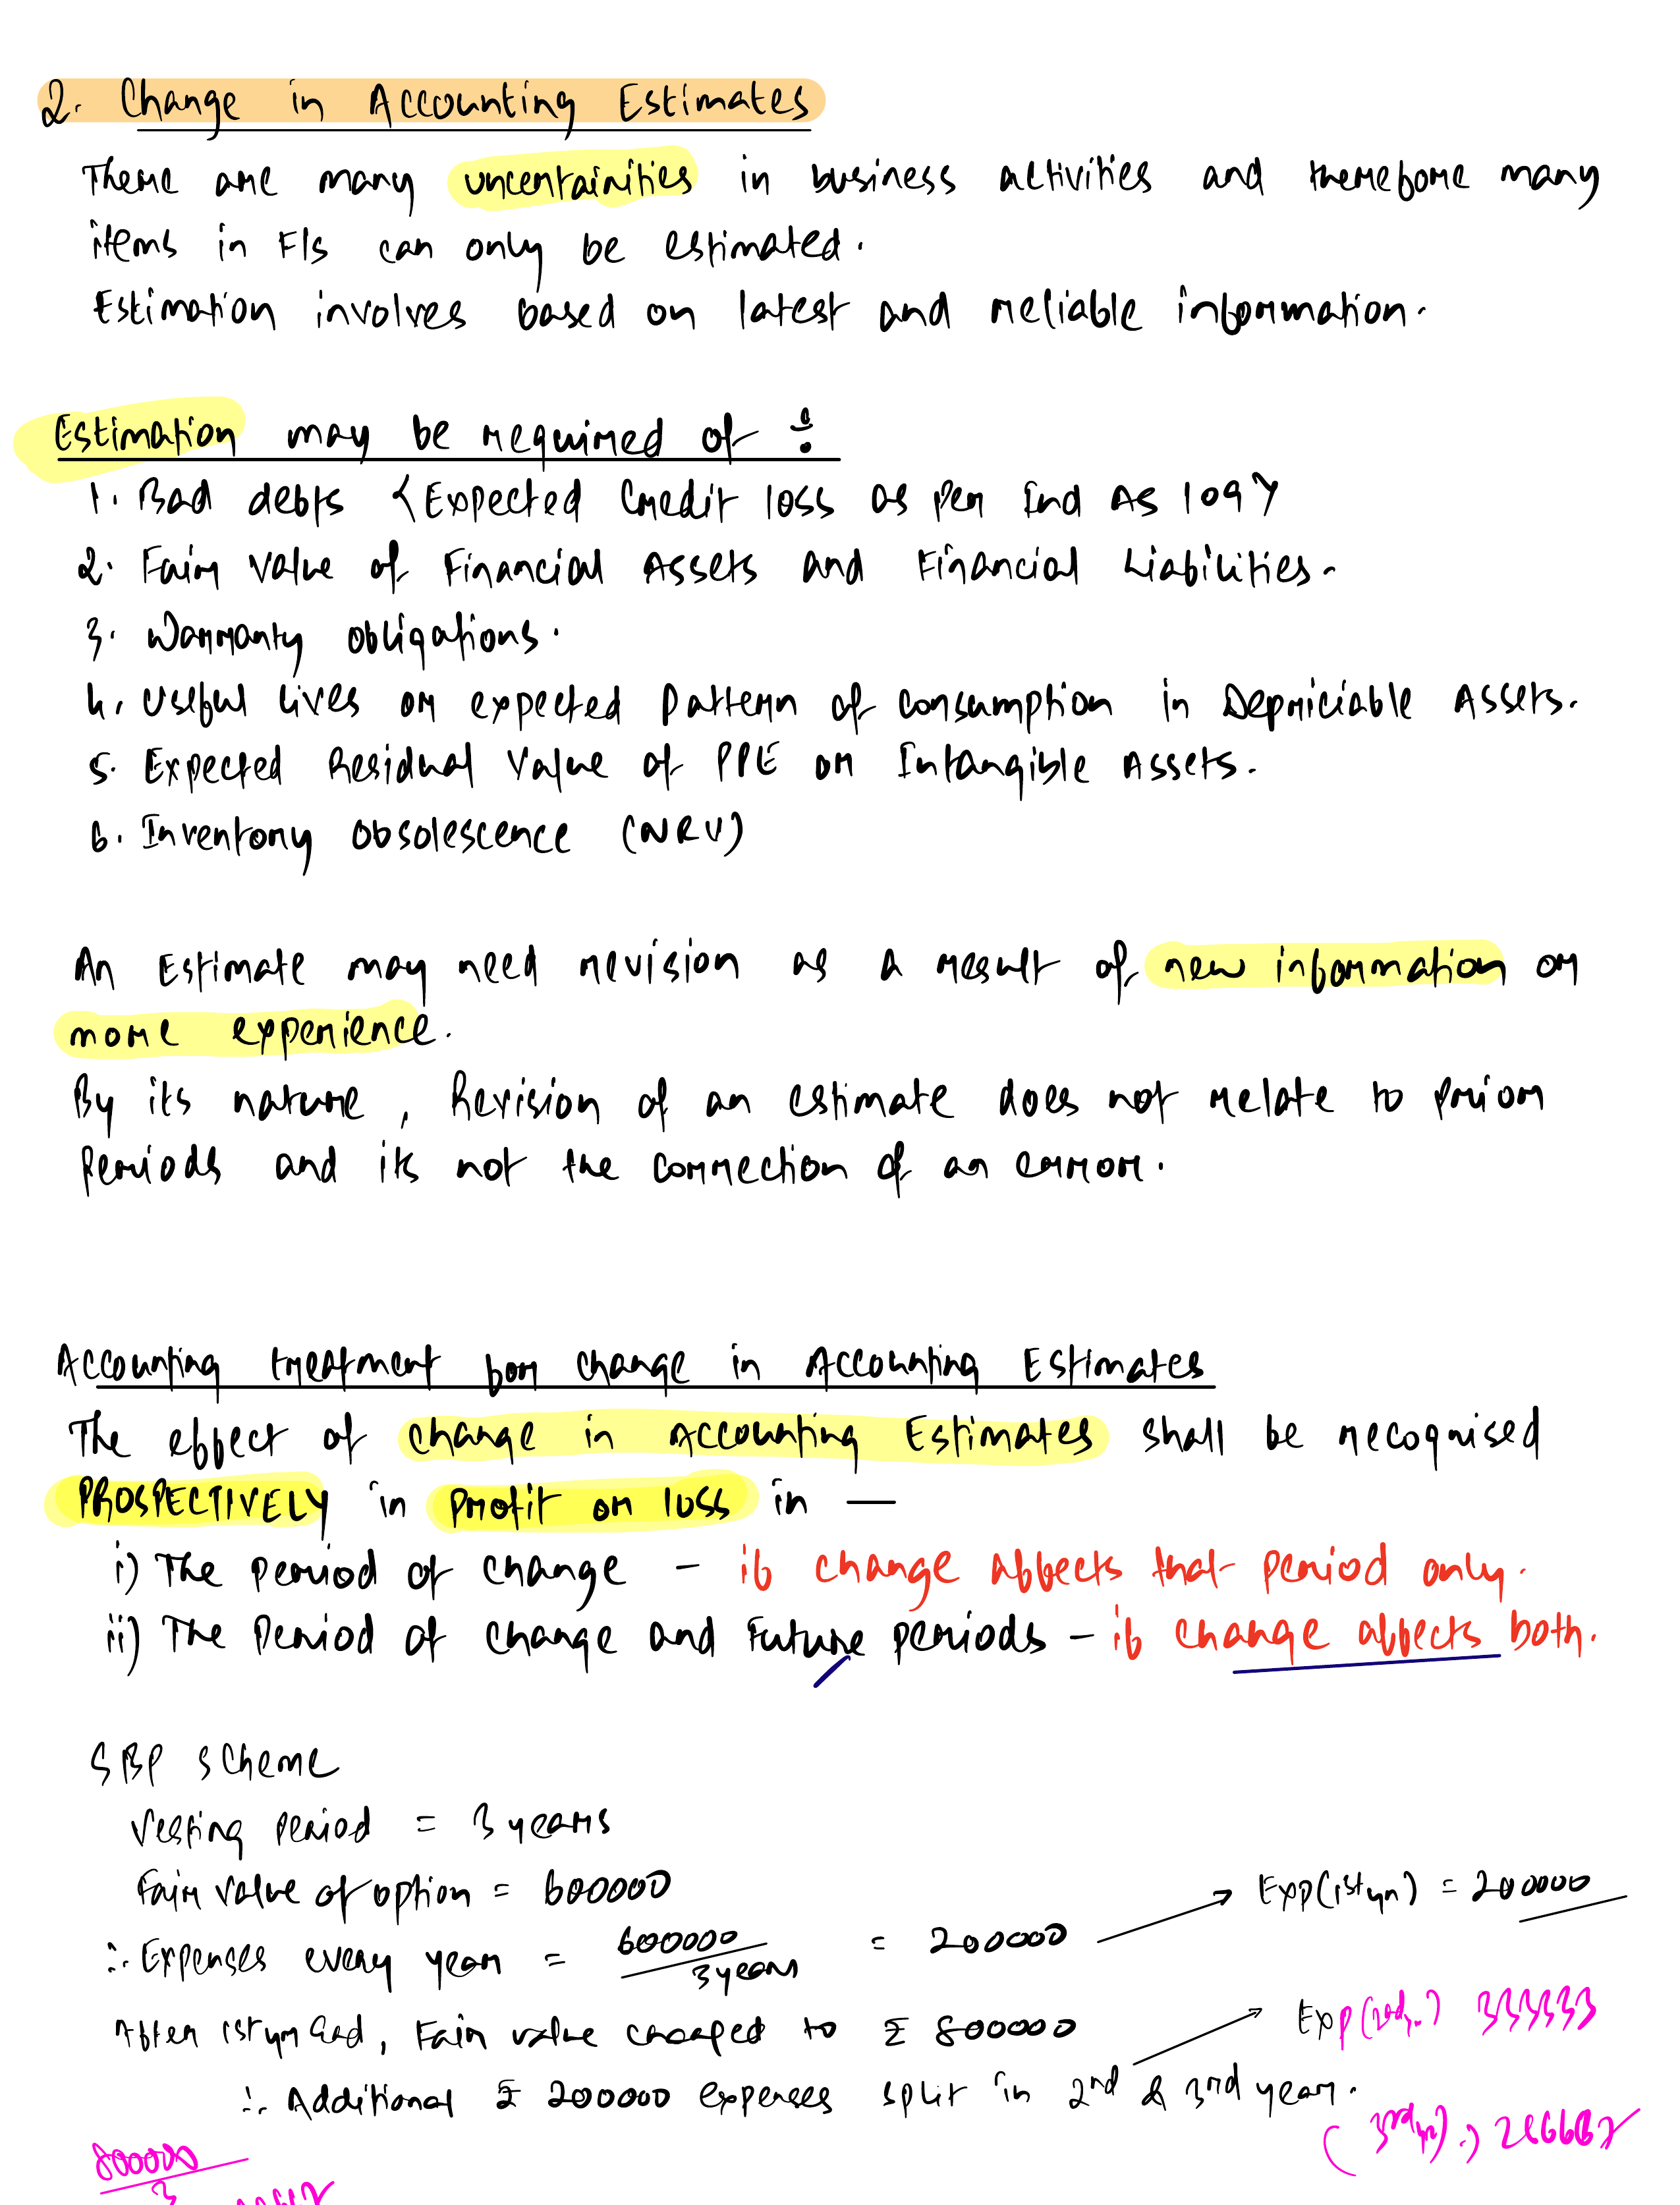 2. Change in Accounting Estimates
There are many uncertainities in business activities and therefore many
items in F/s can only be estimated.
Estimation involves based on latest and reliable information.
Estimation may be required of ÷
1. Bad debts <Expected Credit loss as per Ind AS 109>
2. Fair Value of Financial Assets and Financial Liabilities.
3. Warranty obligations.
4. Useful lives or expected Pattern of consumption in Depriciable Assets.
5. Expected Residual Value of PPE or Intangible Assets.
6. Inventory Obsolescence (NRV)
An Estimate may need revision as a result of new information or
more experience.
By its nature, Revision of an estimate does not relate to prior
Periods and its not the correction of an error.
Accounting treatment for change in Accounting Estimates
The effect of change in Accounting Estimates shall be recognised
PROSPECTIVELY in Profit or loss in —
i) The period of change - if change affects that period only.
ii) The Period of change and Future periods - if change affects both.
SBP scheme
Vesting period = 3 years
Fair value of option = 600000
∴ Expenses every year = 600000 / 3 years = 200000 → Exp (1st yr) = 200000
After 1st yr end, Fair value changed to ₹ 800000 Exp (2nd yr) 333333
∴ Additional ₹ 200000 expenses split in 2nd & 3rd year.
(3rd yr) 266667
800000
3